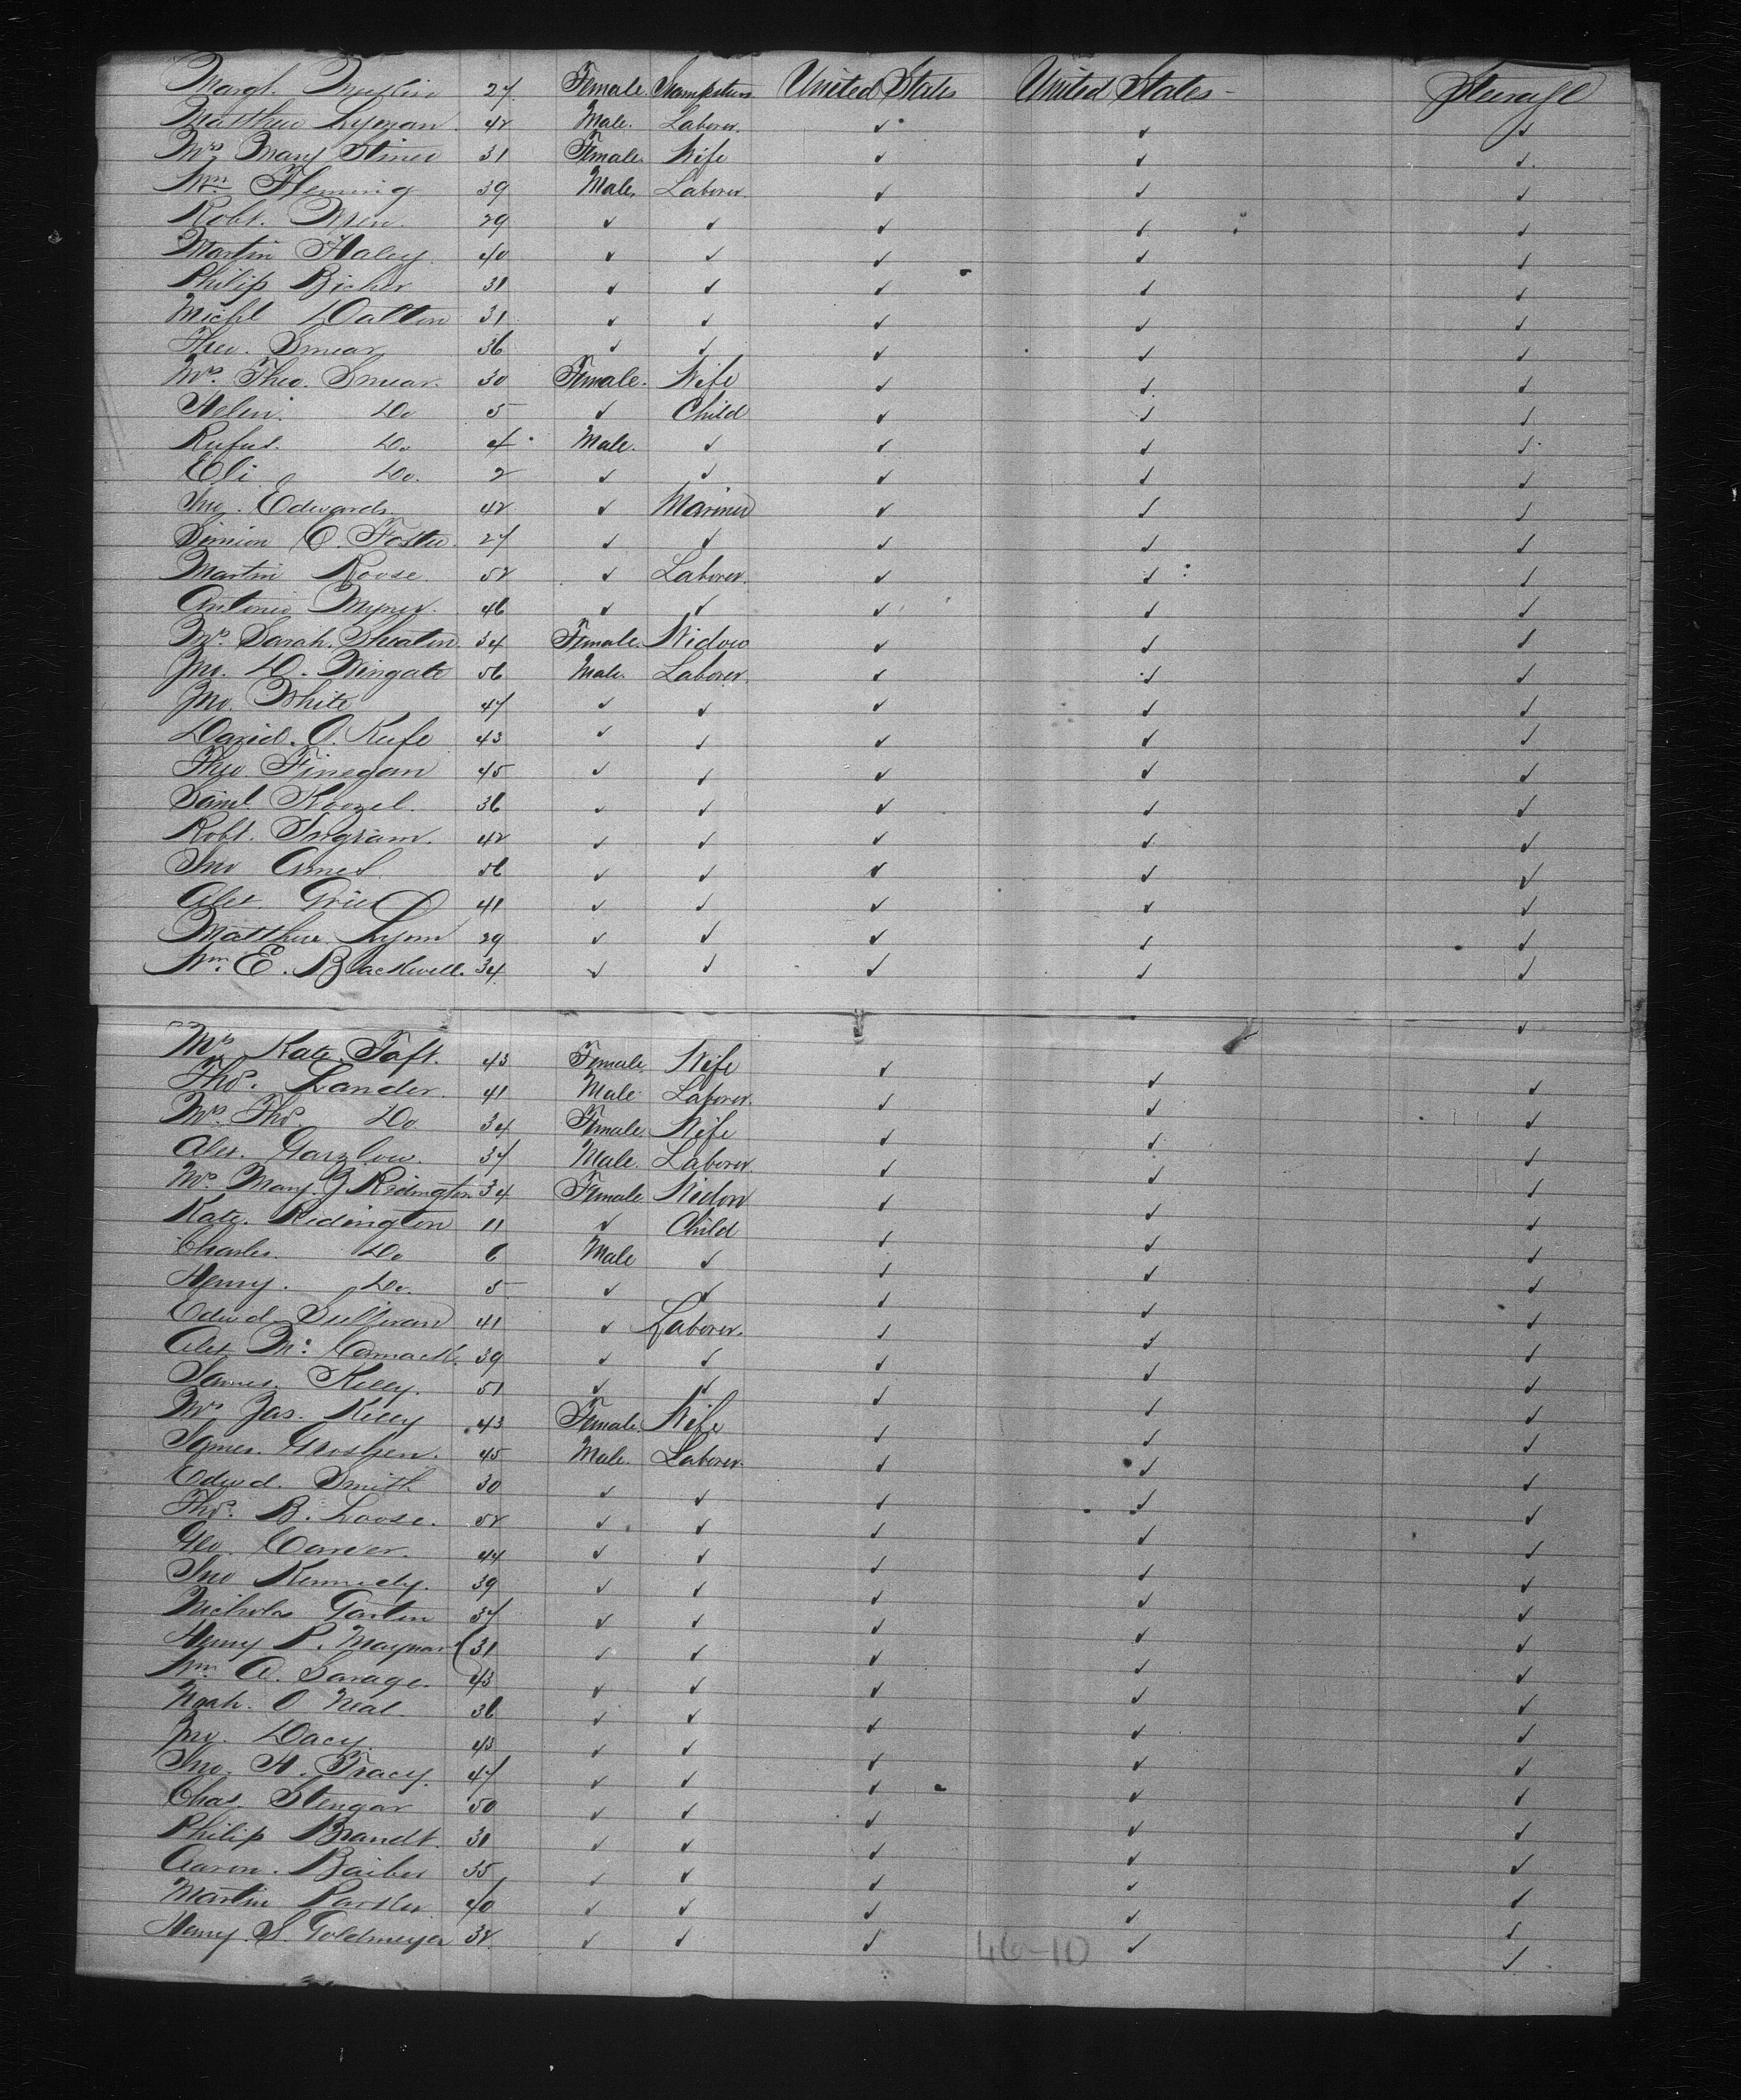 Margt. 27. Female. United States United States - Steerage
Matthew Lyman. 42 Male. Laborer. ✓ ✓ ✓
Mrs. Mary Stiner 31 Female. Wife ✓ ✓ ✓
Wm Fleming 39 Male. Laborer. ✓ ✓ ✓
Robt. 29 ✓ ✓ ✓ ✓ ✓
Martin Haley. 40 ✓ ✓ ✓ ✓ ✓
Philip 31 ✓ ✓ ✓ ✓ ✓
Michl Dalton 31 ✓ ✓ ✓ ✓ ✓
Theo. Smear 36 ✓ ✓ ✓ ✓ ✓
Mrs. Theo. Smear. 30 Female. Wife ✓ ✓ ✓
Helen. Do 5 ✓ Child ✓ ✓ ✓
Rufus. Do 4 Male. ✓ ✓ ✓ ✓
Eli Do. 2 ✓ ✓ ✓ ✓ ✓
Jno. Edwards. 42 ✓ Mariner ✓ ✓ ✓
Simion C. Foster. 27 ✓ ✓ ✓ ✓ ✓
Martin Roose 52 ✓ Laborer. ✓ ✓ ✓
Antonio 46 ✓ ✓ ✓ ✓ ✓
Mrs. Sarah. 34 Female. Widow ✓ ✓ ✓
Jno. D. Wingate 56 Male. Laborer. ✓ ✓ ✓
Jno. White 47 ✓ ✓ ✓ ✓ ✓
David. O. Kufe 43 ✓ ✓ ✓ ✓ ✓
Theo Finegan 45 ✓ ✓ ✓ ✓ ✓
Saml. Koozel. 36 ✓ ✓ ✓ ✓ ✓
Robt. Ingram. 42 ✓ ✓ ✓ ✓ ✓
Jno Ames. 56 ✓ ✓ ✓ ✓ ✓
Alex. 41 ✓ ✓ ✓ ✓ ✓
Matthew Lyon 29 ✓ ✓ ✓ ✓ ✓
Wm. E. Blackwell. 34 ✓ ✓ ✓ ✓ ✓
Mrs Kate. Taft. 43 Female. Wife ✓ ✓ ✓
Thos. Lander. 41 Male Laborer. ✓ ✓ ✓
Mrs. Thos. Do 34 Female. Wife ✓ ✓ ✓
Alex. Garzlow. 37 Male. Laborer. ✓ ✓ ✓
Mrs. Mary. J. Ridington 34 Female Widow ✓ ✓ ✓
Kate. Ridington 11 ✓ Child ✓ ✓ ✓
Charles. Do 6 Male ✓ ✓ ✓ ✓
Henry. Do. 5 ✓ ✓ ✓ ✓ ✓
Edwd. Sullivan 41 ✓ Laborer. ✓ ✓ ✓
Alex Mc. Cormack. 39 ✓ ✓ ✓ ✓ ✓
James. Kelly. 51 ✓ ✓ ✓ ✓ ✓
Mrs Jas. Kelly 43 Female. Wife ✓ ✓ ✓
James. 45 Male. Laborer. ✓ ✓ ✓
Edwd. Smith 30 ✓ ✓ ✓ ✓ ✓
Thos. B. Loose. 52 ✓ ✓ ✓ ✓ ✓
Geo. Carver. 44 ✓ ✓ ✓ ✓ ✓
Jno Kennedy. 39 ✓ ✓ ✓ ✓ ✓
Nicholas Garten 37 ✓ ✓ ✓ ✓ ✓
Henry P. Maynard 31 ✓ ✓ ✓ ✓ ✓
Wm. A. Savage. 43 ✓ ✓ ✓ ✓ ✓
Noah. O Neal 36 ✓ ✓ ✓ ✓ ✓
Jno. Dacy. 43 ✓ ✓ ✓ ✓ ✓
Jno. H. Tracy. 47 ✓ ✓ ✓ ✓ ✓
Chas. Stengar 50 ✓ ✓ ✓ ✓ ✓
Philip Brandt. 31 ✓ ✓ ✓ ✓ ✓
Aaron. Baiber 35 ✓ ✓ ✓ ✓ ✓
Martin 40 ✓ ✓ ✓ ✓ ✓
Henry. S. Goldmeyer 38. ✓ ✓ ✓ ✓ ✓
46-10